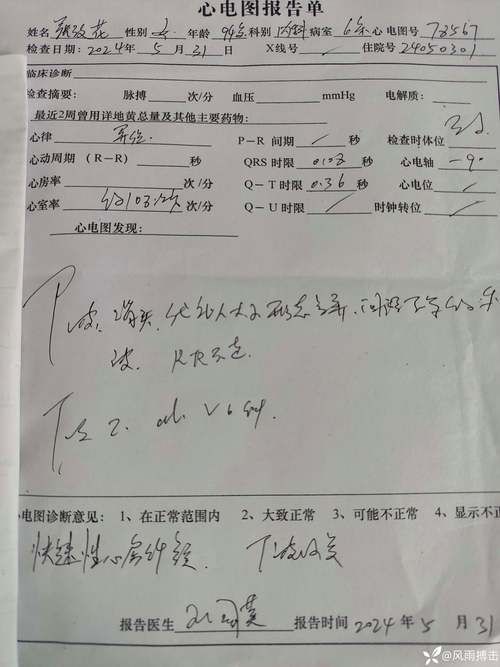 心电图报告单
姓名 花 性别 女 年龄 科别 内科 病室 6 心电图号 78567
检查日期：2024年 5 月 31 日 X线号 / 住院号 24050301
临床诊断
检查摘要： 脉搏 次/分 血压 mmHg 电解质：
最近2周曾用洋地黄总量及其他主要药物：
心律 异位 P－R 间期 / 秒 检查时体位
心动周期（R－R） 秒 QRS 时限 0.08 秒 心电轴 －9°
心房率 次/分 Q－T 时限 0.36 秒 心电位 /
心室率 约103次 次/分 Q－U 时限 / 时钟转位 /
心电图发现：
P波消失，代之以大小形态各异、间距不等的f
波，RR不等
T
心电图诊断意见：1、在正常范围内 2、大致正常 3、可能不正常 4、显示不正
快速性心房纤颤 T波改变
报告医生 报告时间 2024 年 5 月 31
@风雨搏击